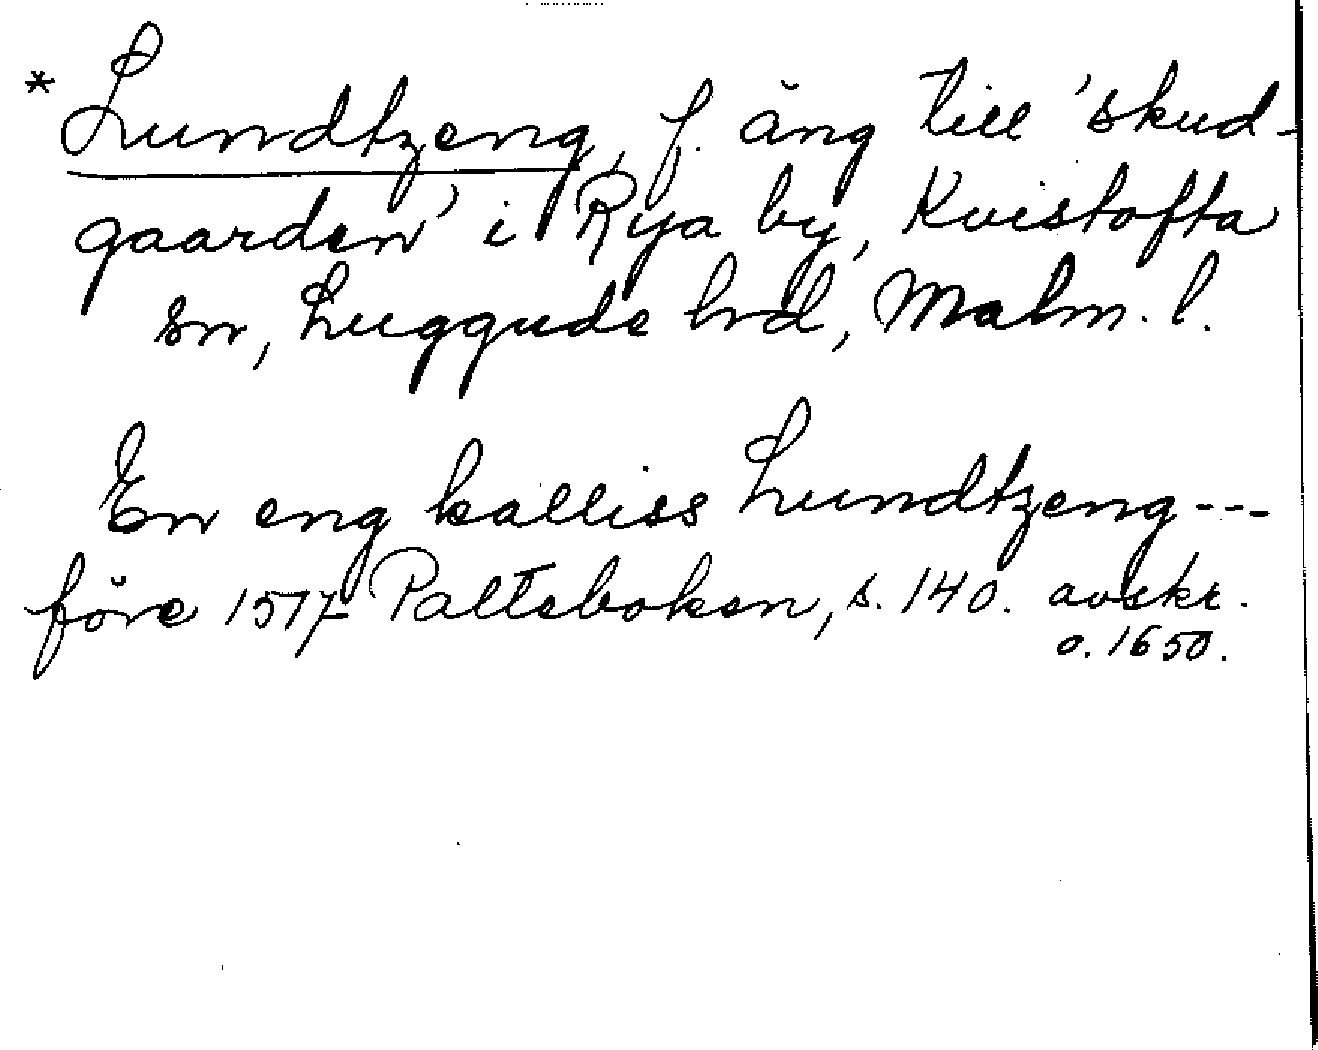 * Lundtzeng, f. äng till 'skud-
gaarden' i Rya by, Kvistofta
sn, Luggude hd, Malm. l.
En eng kalliss Lundtzeng---
före 1517 Palteboken, s. 140. avskr.
o. 1650.